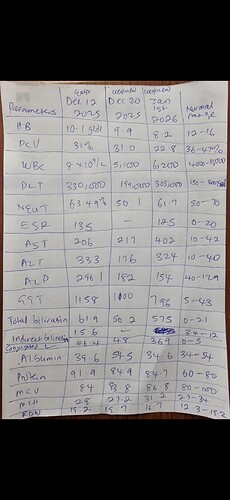 Dec 12 Dec 20 Jan 1st Normal range
Parameters 2025 2025 2026
HB 10.1 g/dl 9.9 8.2 12-16
PCV 31% 31.0 22.8 36-47%
WBC 8 x 10^9/L 5,100 6,200
PLT 330,000 199,000 303,000
NEUT 63.49% 50.1 61.7 50-70
ESR 135 — 125 0-20
AST 206 217 402 10-42
ALT 333 176 324 10-40
ALP 296.1 182 154 40-129
GGT 1158 796 5-43
Total bilirubin 61.9 50.2 57.5 0-21
Indirect bilirubin 15.6 — 3.4-12
Conjugated 46.4 48 36.9 0-5
Albumin 39.6 34.6 34-54
Protein 91.9 84.9 84.7 60-80
MCV 84 83.8 86.8 80-100
MCH 28 27.2 31.2 27-34
RDW 15.2 15.7 16.7